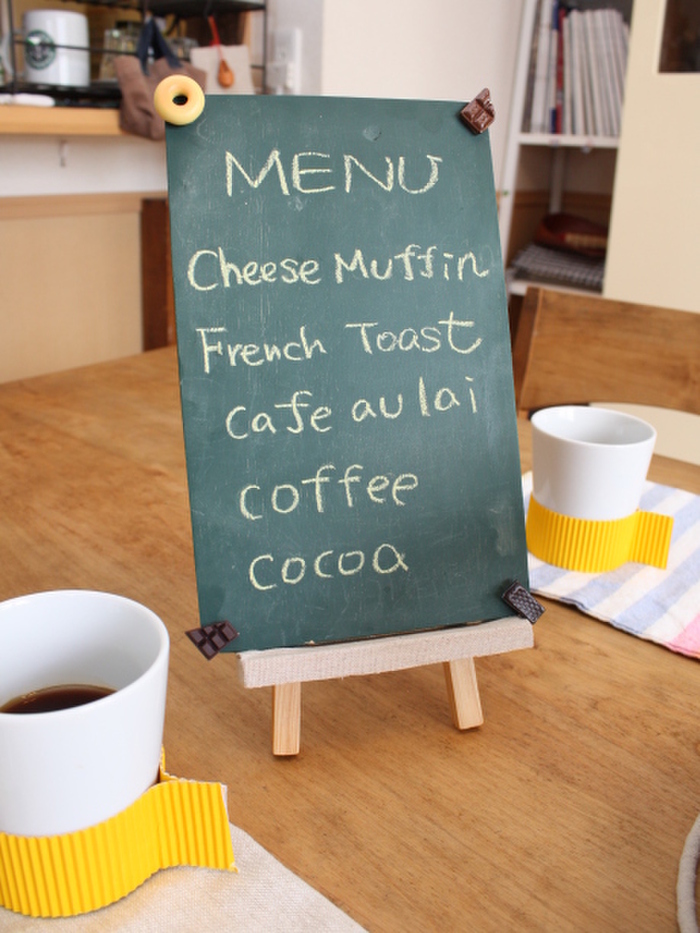 MENU
Cheese Muffin
French Toast
cafe au lai
coffee
cocoa